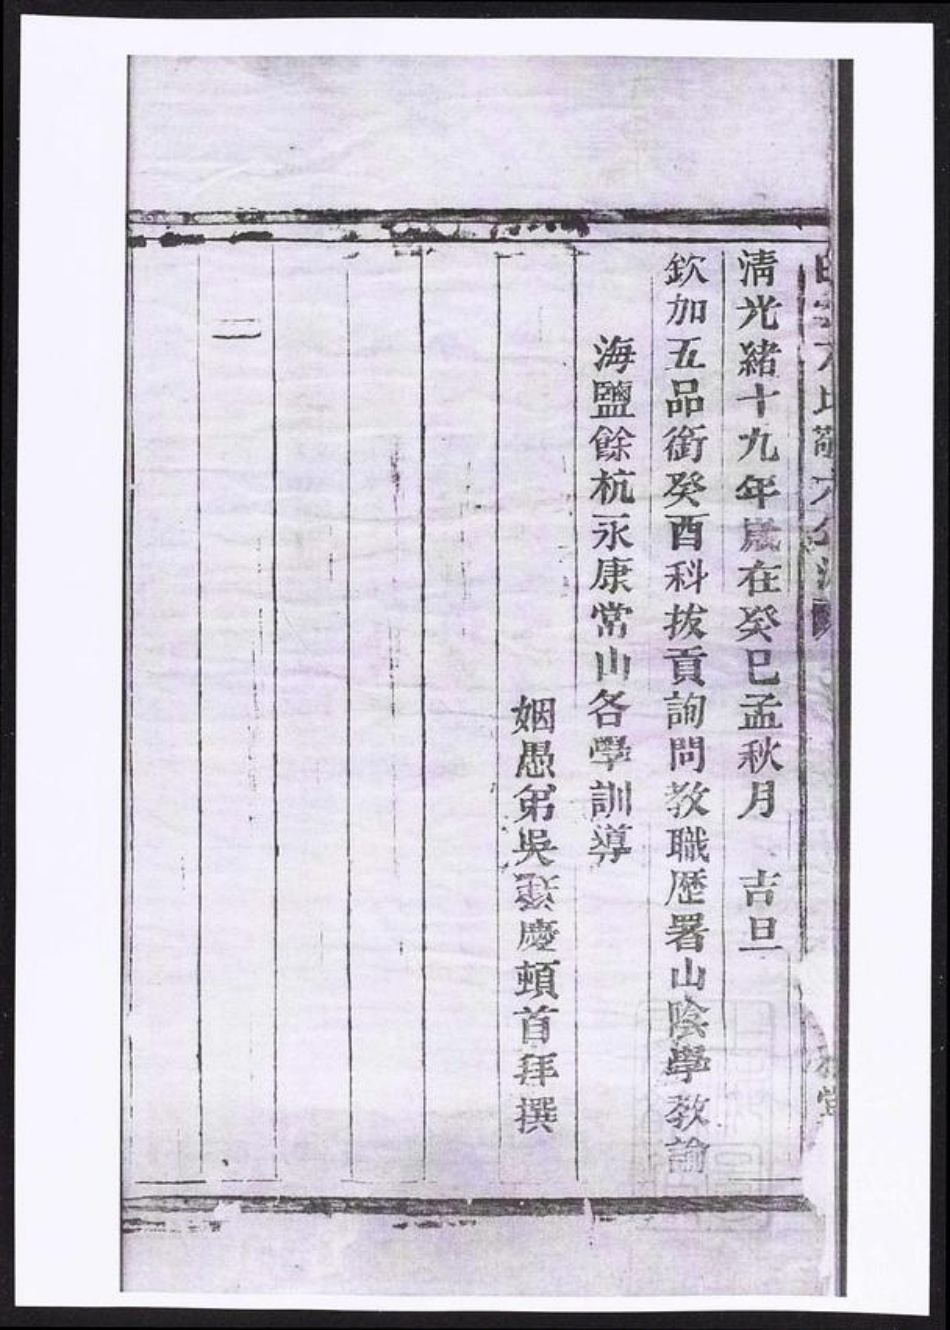 清光緒十九年歲在癸巳孟秋月　吉旦
欽加五品銜癸酉科拔貢詢問教職歷署山陰學教諭
海鹽餘杭永康常山各學訓導
姻愚弟吳慶頓首拜撰
二